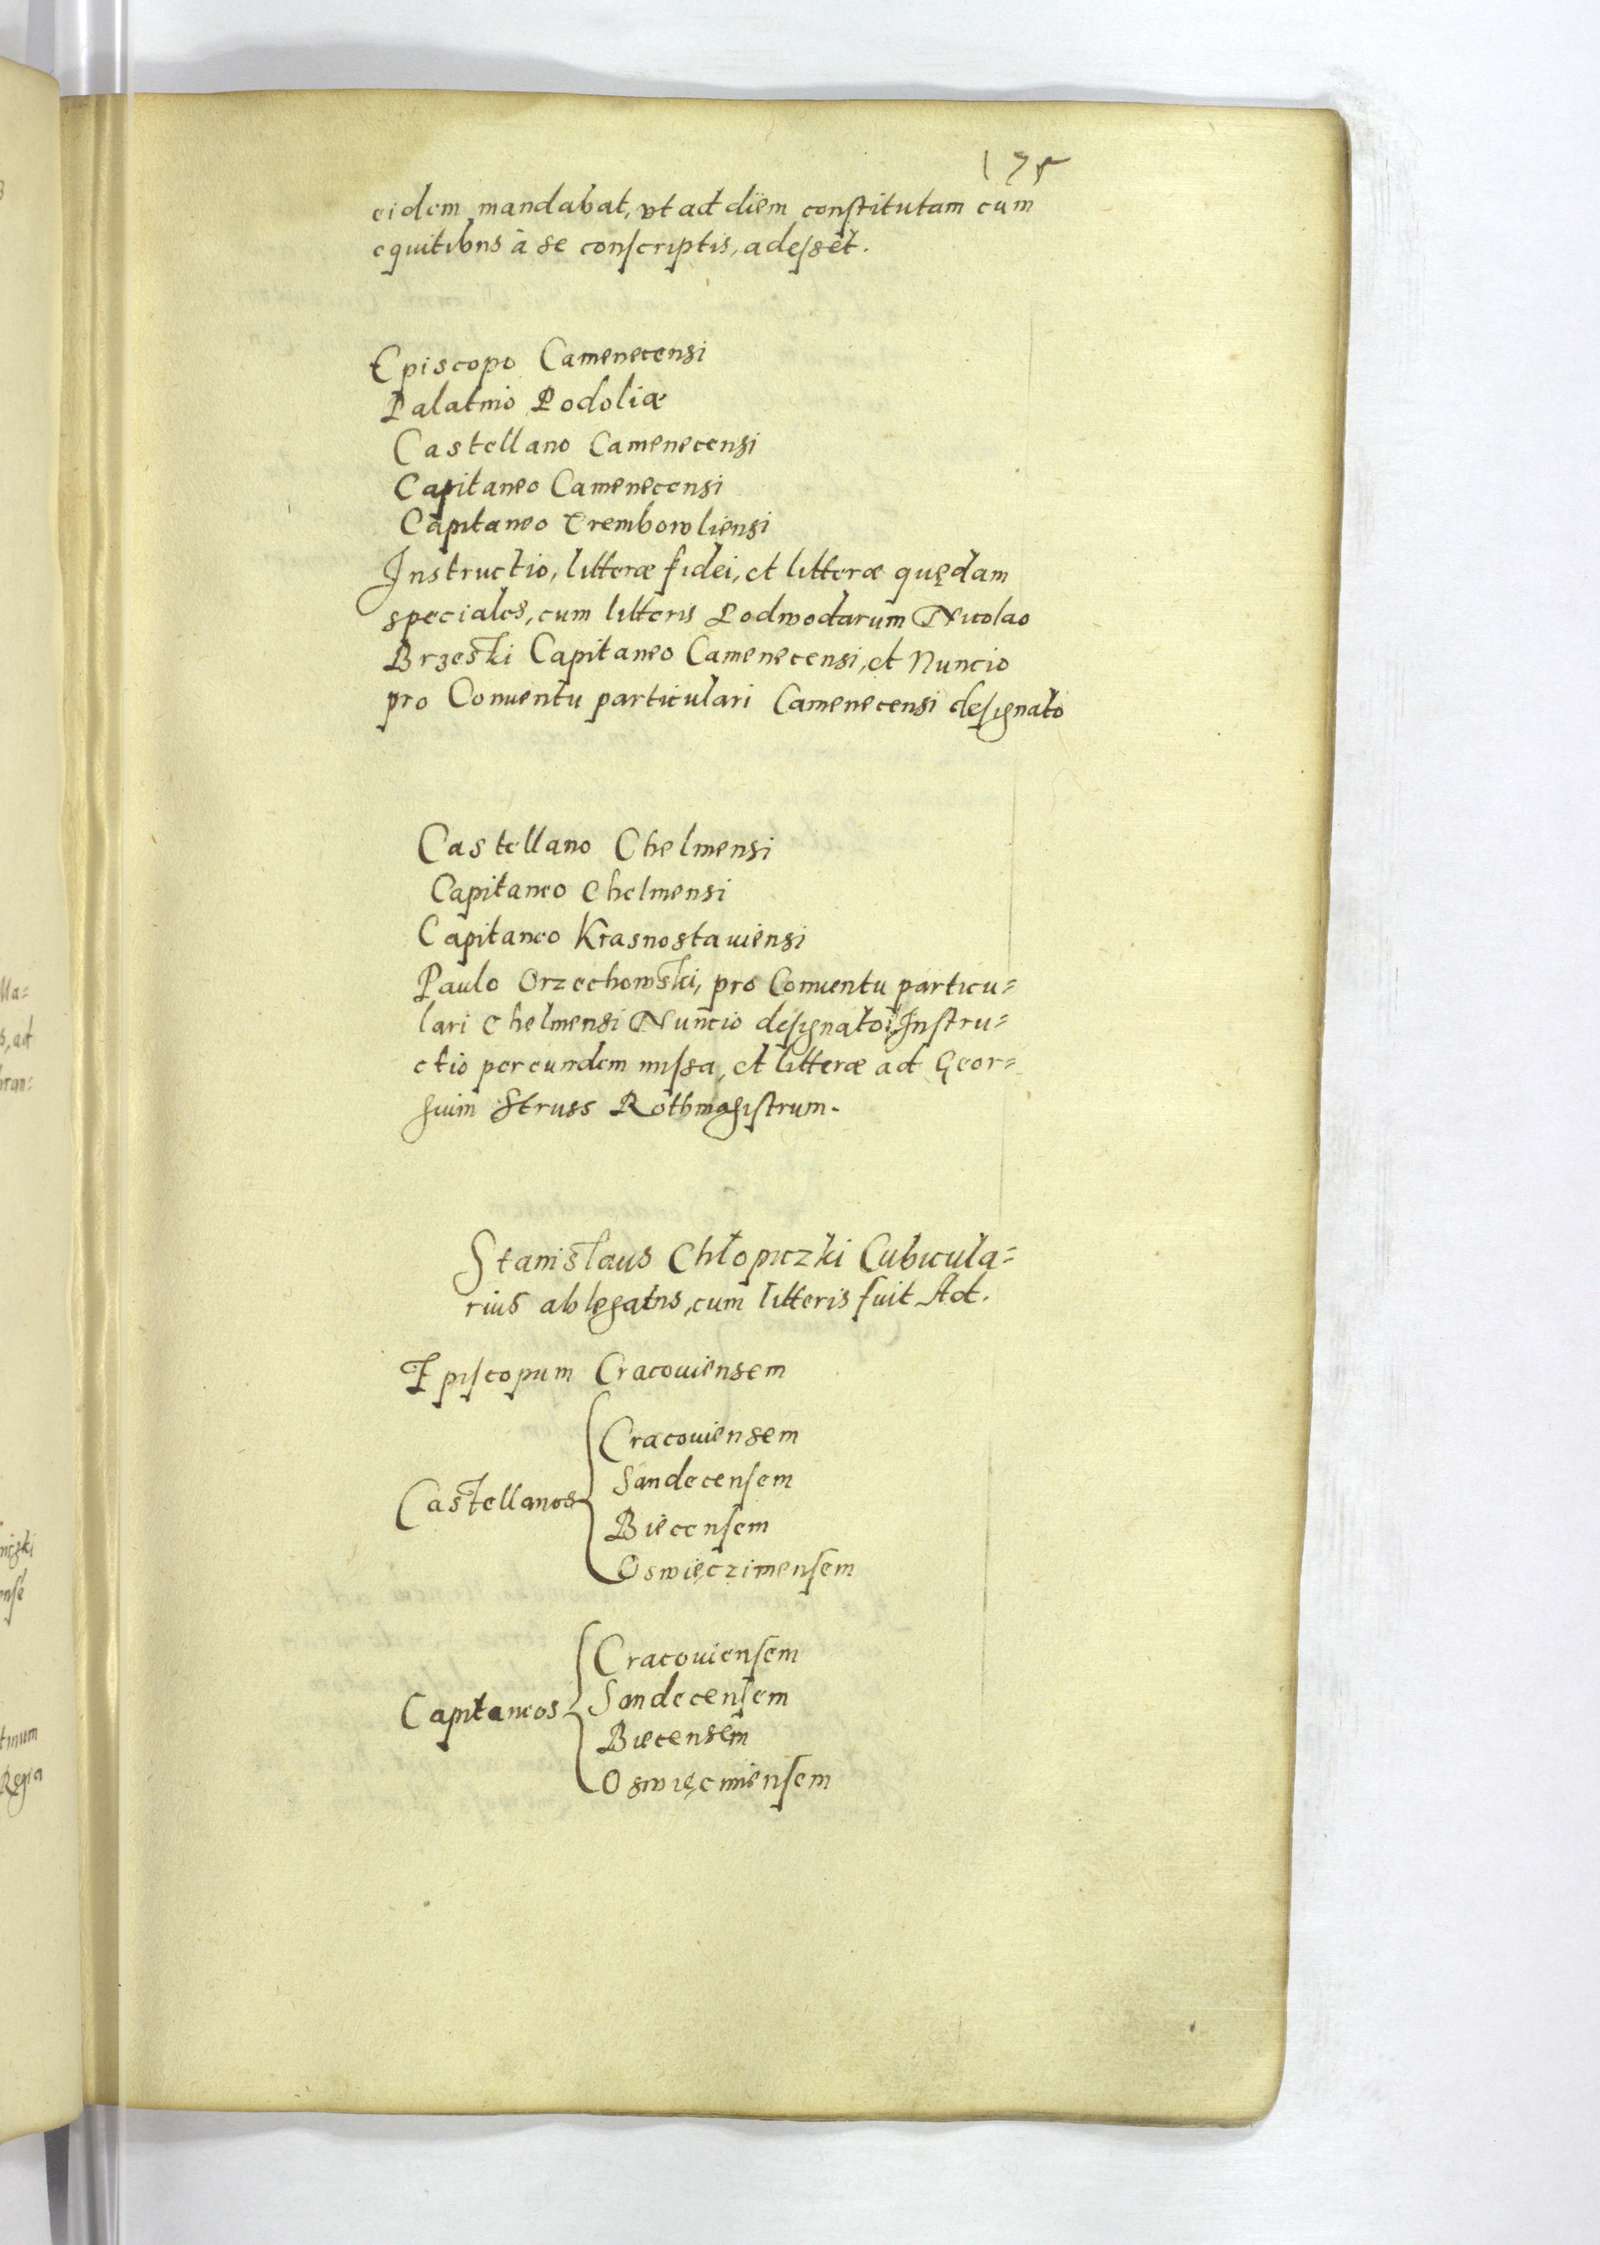 175
eidem mandabat, vt ad diem constitutam cum
equitibus à se conscriptis, adesset.
Episcopo Camenecensi
Palatino Podoliæ
Castellano Camenecensi
Capitaneo Camenecensi
Capitaneo Trembowliensi
Instructio, litteræ fidei, et litteræ quędam
speciales, cum litteris Podwodarum Nicolao
Brzeski Capitaneo Camenecensi, et Nuncio
pro Conuentu particulari Camenecensi designato
Castellano Chelmensi
Capitaneo Chelmensi
Capitaneo Krasnostauiensi
Paulo Orzechowski, pro Conuentu particu=
lari Chelmensi Nuncio designato, Instru=
ctio per eundem missa, et litteræ ad Geor=
gium Struss Rothmagistrum.
Stanislaus Chłopiczki Cubicula=
rius ablegatus, cum litteris fuit Ad.
Episcopum Cracouiensem
Castellanos
Cracouiensem
Sandecensem
Biecensem
Oswięczimensem
Capitaneos
Cracouiensem
Sandecensem
Biecensem
Oswięcimensem